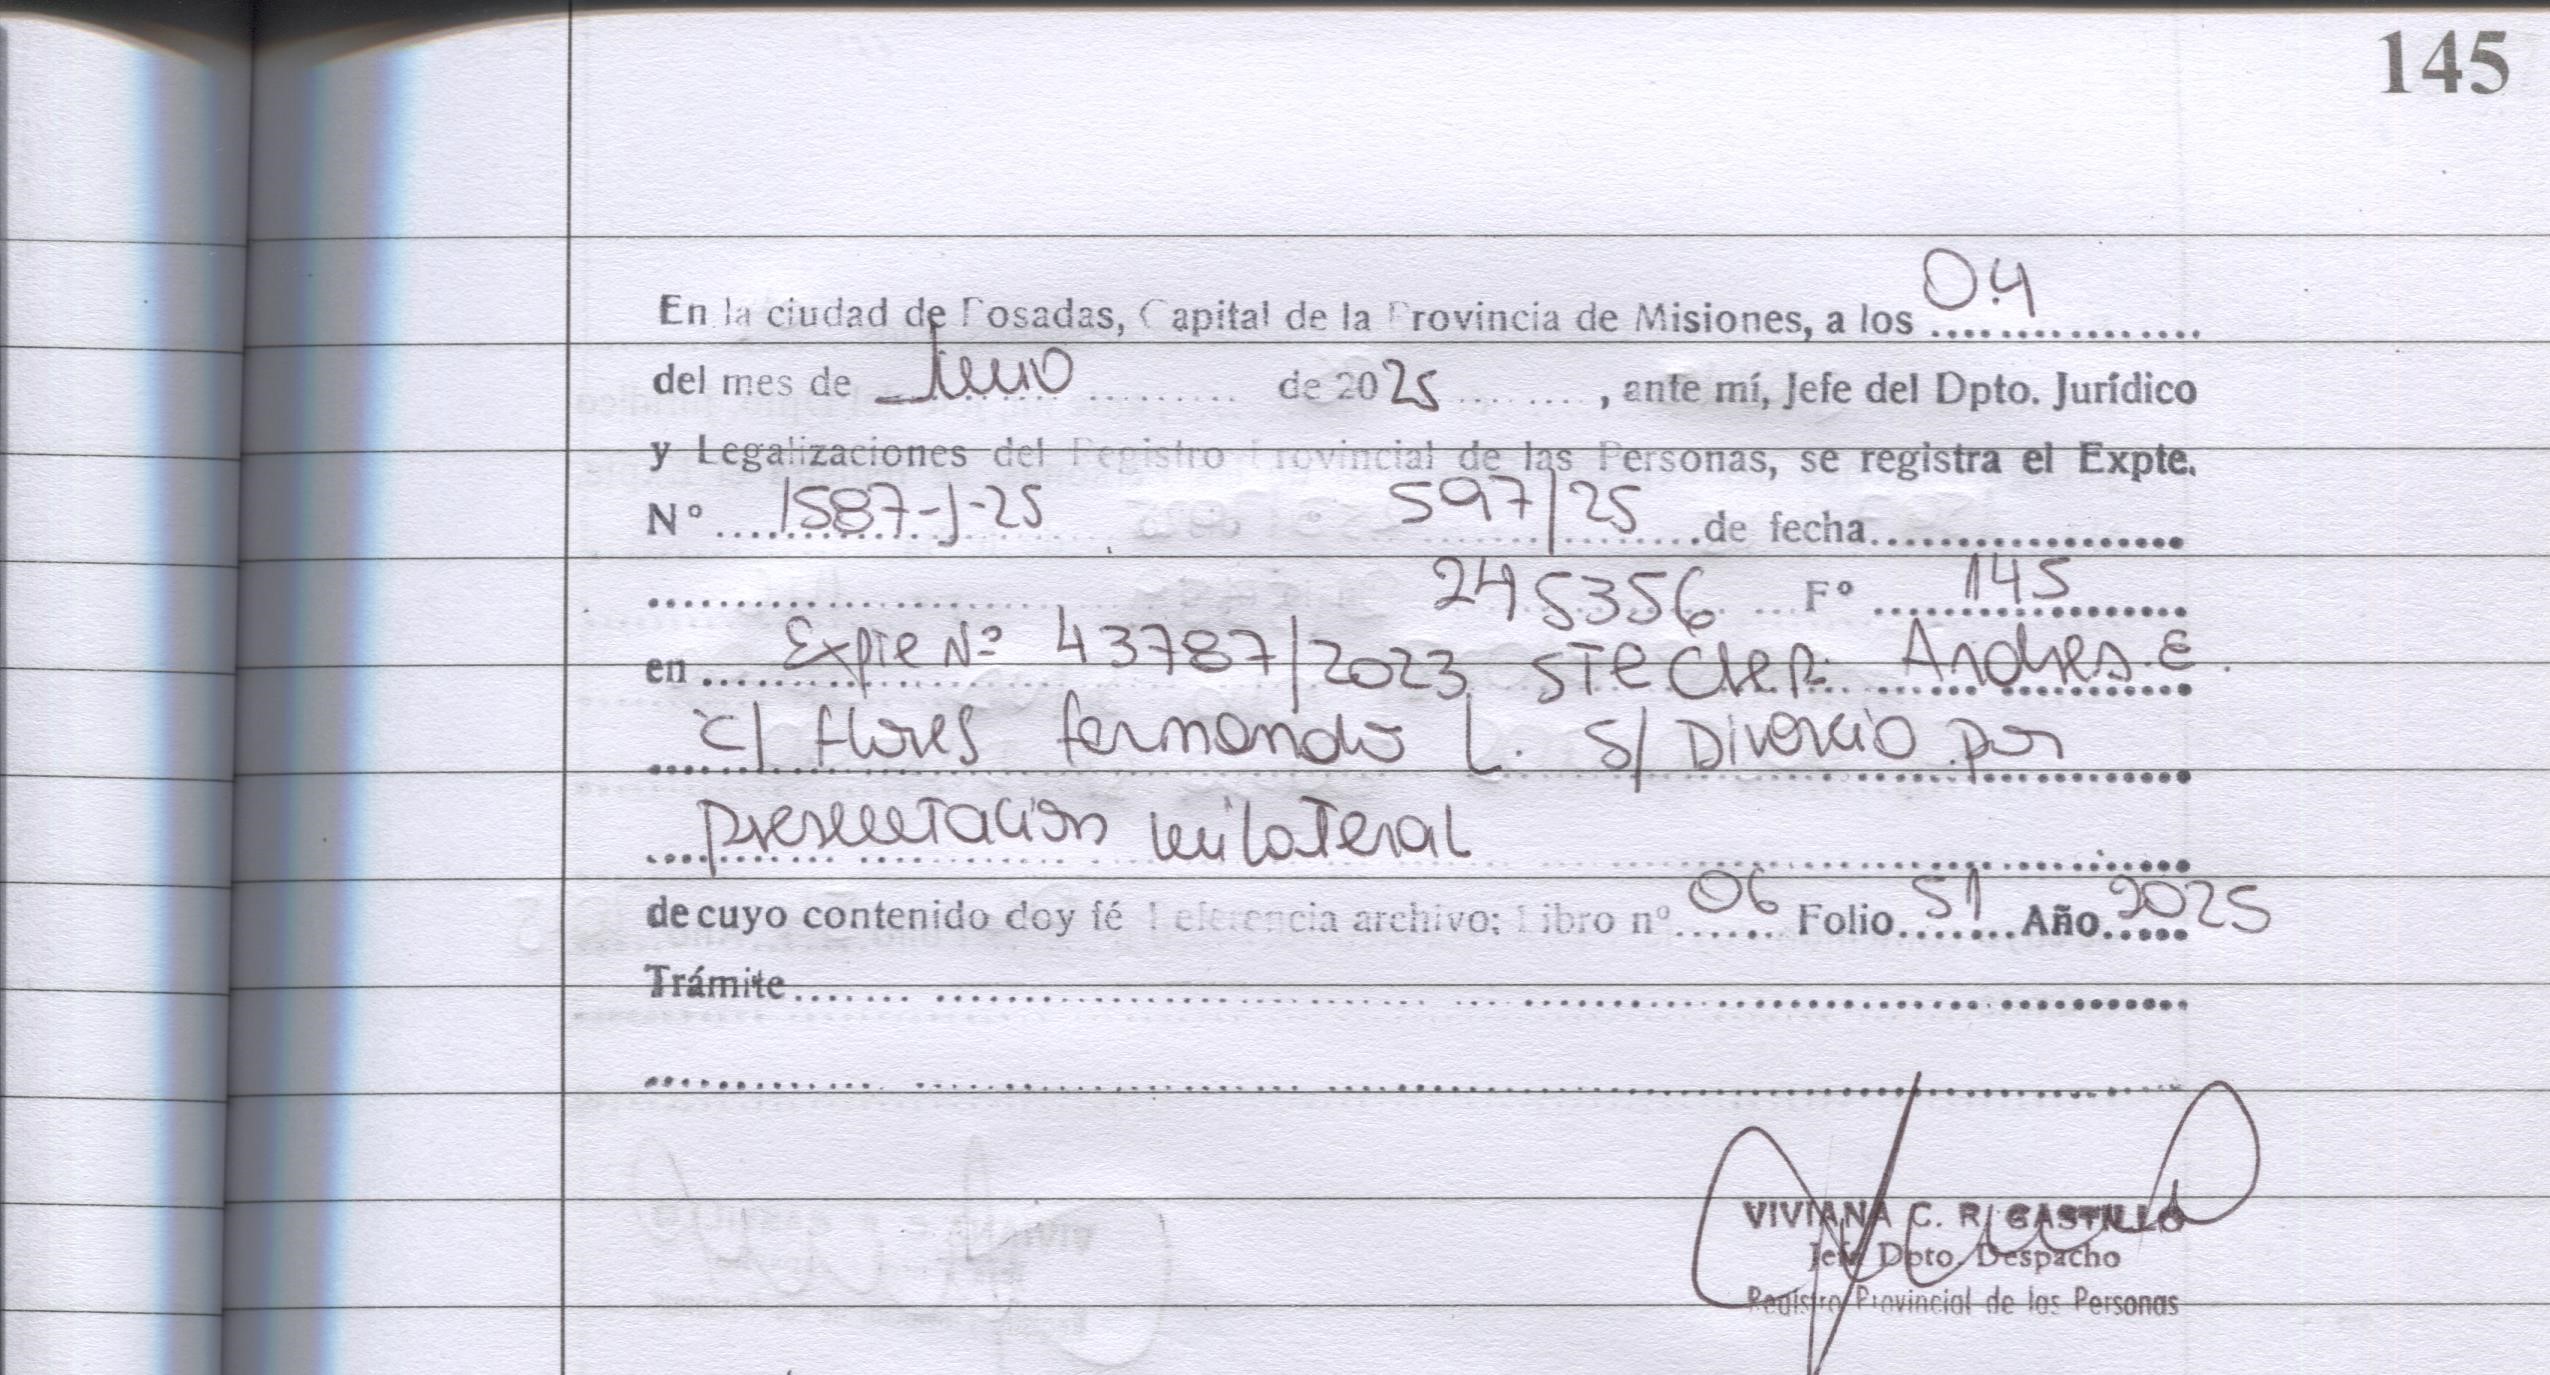 145
En la ciudad de Posadas, Capital de la Provincia de Misiones, a los 04
del mes de Junio de 2025, ante mí, Jefe del Dpto. Jurídico
y Legalizaciones del Registro Provincial de las Personas, se registra el Expte.
Nº 1587-J-25 597/25 de fecha
245356 Fº 145
en Expte Nº 43787/2023 STECHER Andres E.
c/ flores fernando L. S/ Divorcio por
presentacion unilateral
de cuyo contenido doy fé Referencia archivo: Libro nº 06 Folio 51 Año 2025
Trámite
VIVIANA C. R. CASTILLO
Jefe Dpto. Despacho
Registro Provincial de las Personas